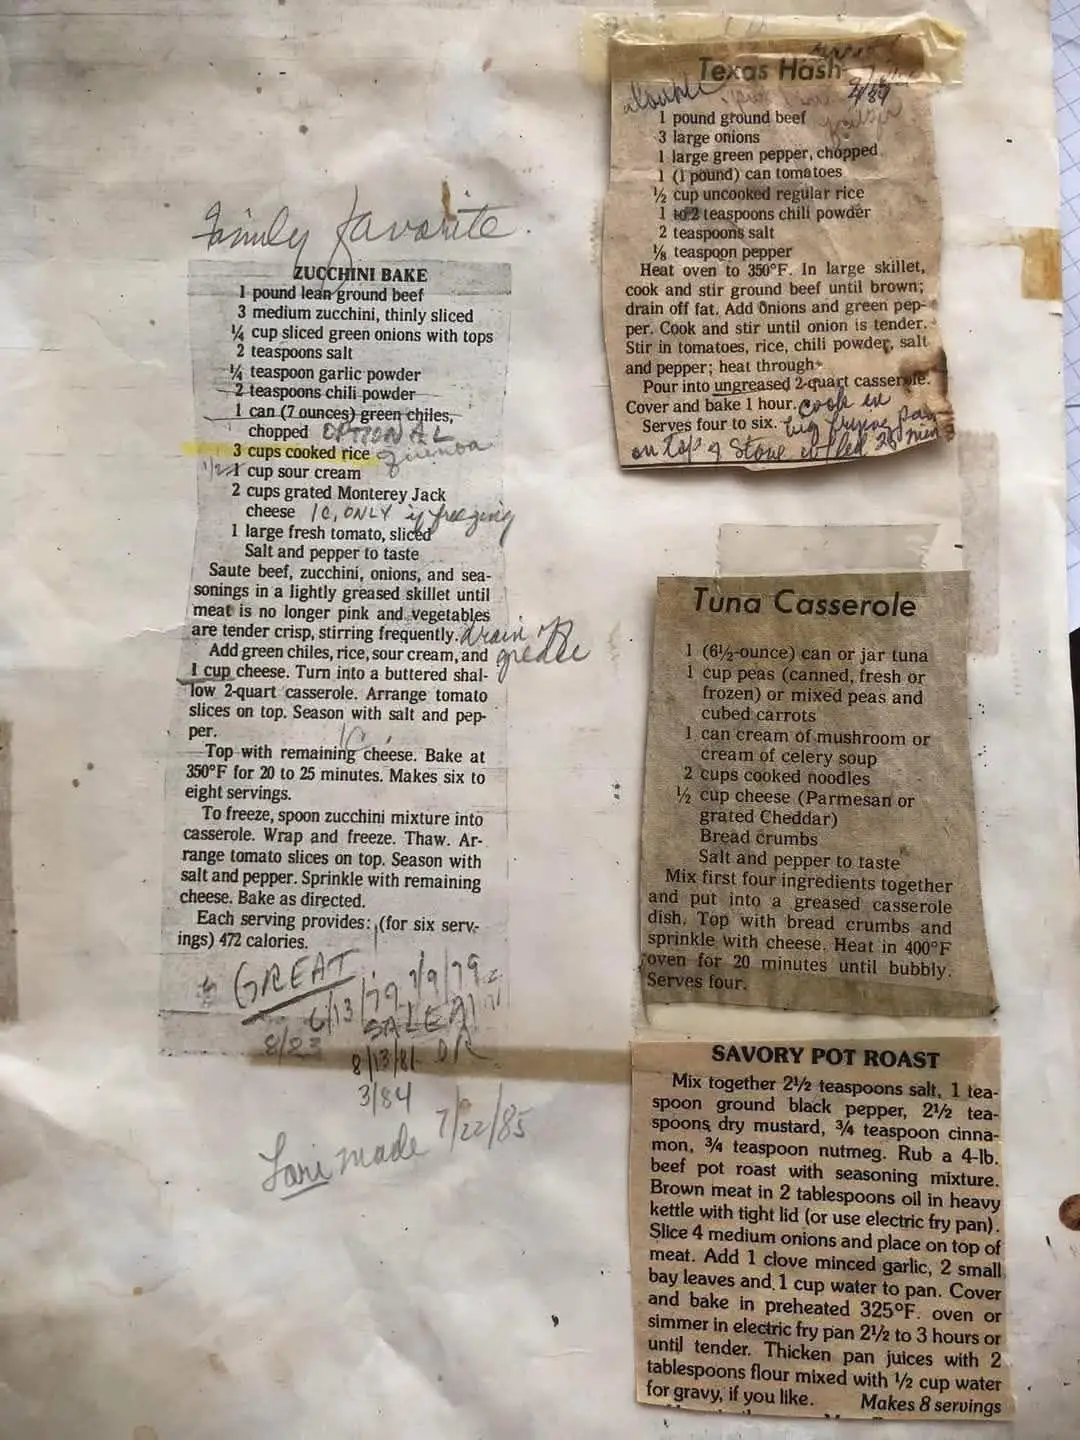 Family favorite.
ZUCCHINI BAKE
1 pound lean ground beef
3 medium zucchini, thinly sliced
¼ cup sliced green onions with tops
2 teaspoons salt
¼ teaspoon garlic powder
2 teaspoons chili powder
1 can (7 ounces) green chiles,
chopped OPTIONAL
3 cups cooked rice quinoa
1/2 1 cup sour cream
2 cups grated Monterey Jack
cheese 1C, ONLY if freezing
1 large fresh tomato, sliced
Salt and pepper to taste
Saute beef, zucchini, onions, and sea-
sonings in a lightly greased skillet until
meat is no longer pink and vegetables
are tender crisp, stirring frequently. drain off
grease
Add green chiles, rice, sour cream, and
1 cup cheese. Turn into a buttered shal-
low 2-quart casserole. Arrange tomato
slices on top. Season with salt and pep-
per.
1C
Top with remaining cheese. Bake at
350°F for 20 to 25 minutes. Makes six to
eight servings.
To freeze, spoon zucchini mixture into
casserole. Wrap and freeze. Thaw. Ar-
range tomato slices on top. Season with
salt and pepper. Sprinkle with remaining
cheese. Bake as directed.
Each serving provides: (for six serv-
ings) 472 calories.
GREAT
6/13/79 7/9/79
8/83
8/13/81
3/84
Lori made 7/22/85
Texas Hash
double
4/89
1 pound ground beef
3 large onions
1 large green pepper, chopped
1 (1 pound) can tomatoes
½ cup uncooked regular rice
1 to 2 teaspoons chili powder
2 teaspoons salt
⅛ teaspoon pepper
Heat oven to 350°F. In large skillet,
cook and stir ground beef until brown;
drain off fat. Add onions and green pep-
per. Cook and stir until onion is tender.
Stir in tomatoes, rice, chili powder, salt
and pepper; heat through.
Pour into ungreased 2-quart casserole.
Cover and bake 1 hour. cook in
Serves four to six. big frying pan
on top of stove w/lid 25 min
Tuna Casserole
1 (6½-ounce) can or jar tuna
1 cup peas (canned, fresh or
frozen) or mixed peas and
cubed carrots
1 can cream of mushroom or
cream of celery soup
2 cups cooked noodles
½ cup cheese (Parmesan or
grated Cheddar)
Bread crumbs
Salt and pepper to taste
Mix first four ingredients together
and put into a greased casserole
dish. Top with bread crumbs and
sprinkle with cheese. Heat in 400°F
oven for 20 minutes until bubbly.
Serves four.
SAVORY POT ROAST
Mix together 2½ teaspoons salt, 1 tea-
spoon ground black pepper, 2½ tea-
spoons dry mustard, ¾ teaspoon cinna-
mon, ¾ teaspoon nutmeg. Rub a 4-lb.
beef pot roast with seasoning mixture.
Brown meat in 2 tablespoons oil in heavy
kettle with tight lid (or use electric fry pan).
Slice 4 medium onions and place on top of
meat. Add 1 clove minced garlic, 2 small
bay leaves and 1 cup water to pan. Cover
and bake in preheated 325°F. oven or
simmer in electric fry pan 2½ to 3 hours or
until tender. Thicken pan juices with 2
tablespoons flour mixed with ½ cup water
for gravy, if you like. Makes 8 servings